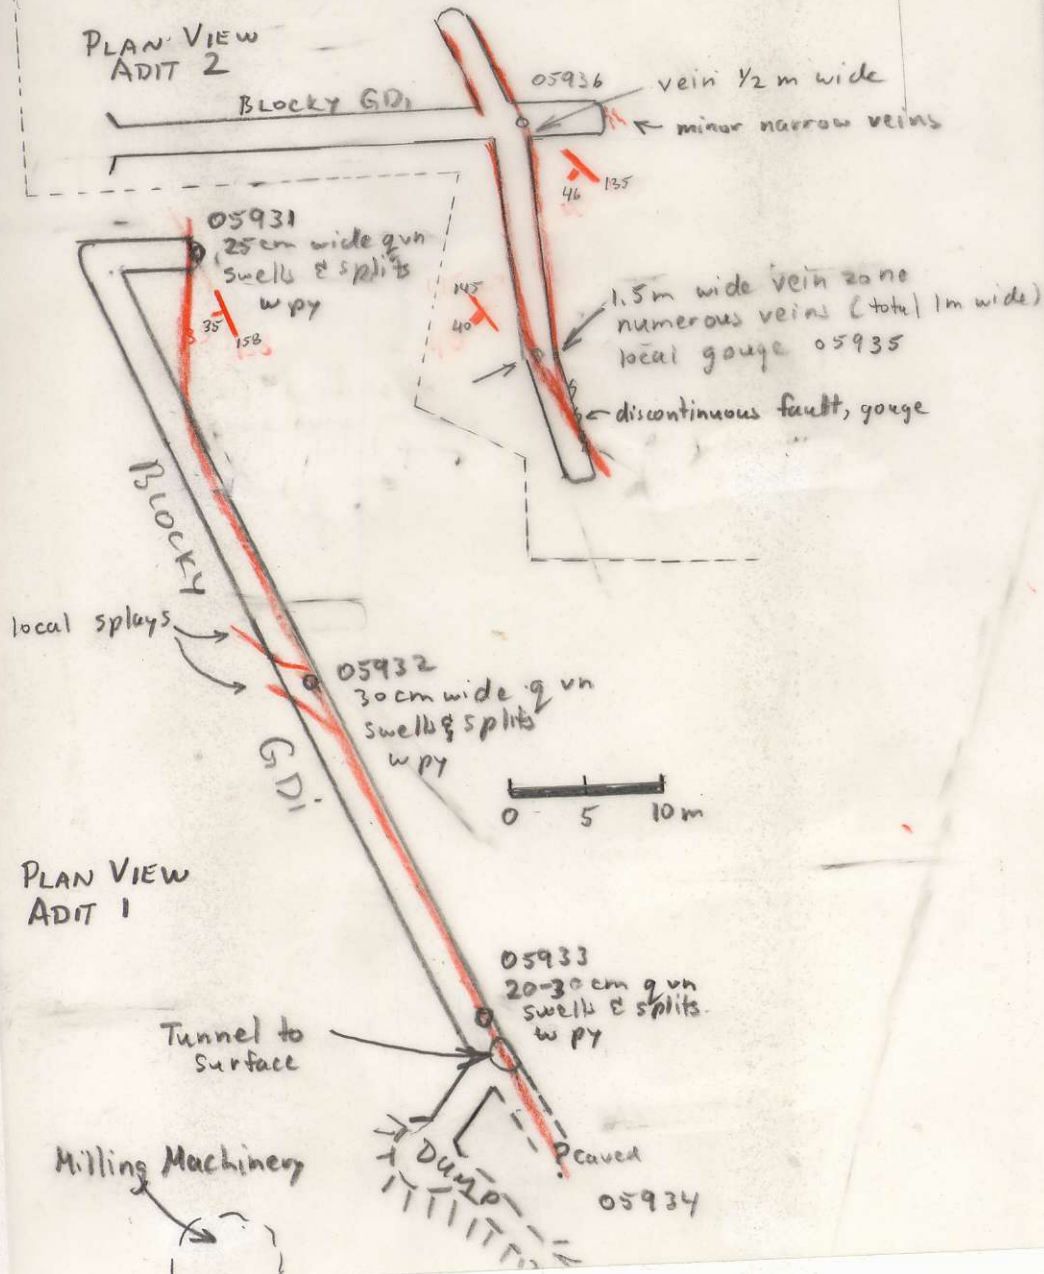 PLAN VIEW
ADIT 2
BLOCKY GDi
05936
vein 1/2 m wide
minor narrow veins
46
135
05931
25cm wide q vn
swells & splits
w py
35
158
145
40
1.5m wide vein zone
numerous veins (total 1m wide)
local gouge 05935
discontinuous fault, gouge
BLOCKY
GDi
local splays
05932
30cm wide q vn
swells & splits
w py
0 5 10 m
PLAN VIEW
ADIT 1
05933
20-30cm q vn
swells & splits.
w py
Tunnel to
surface
DUMP
? caved
05934
Milling Machinery